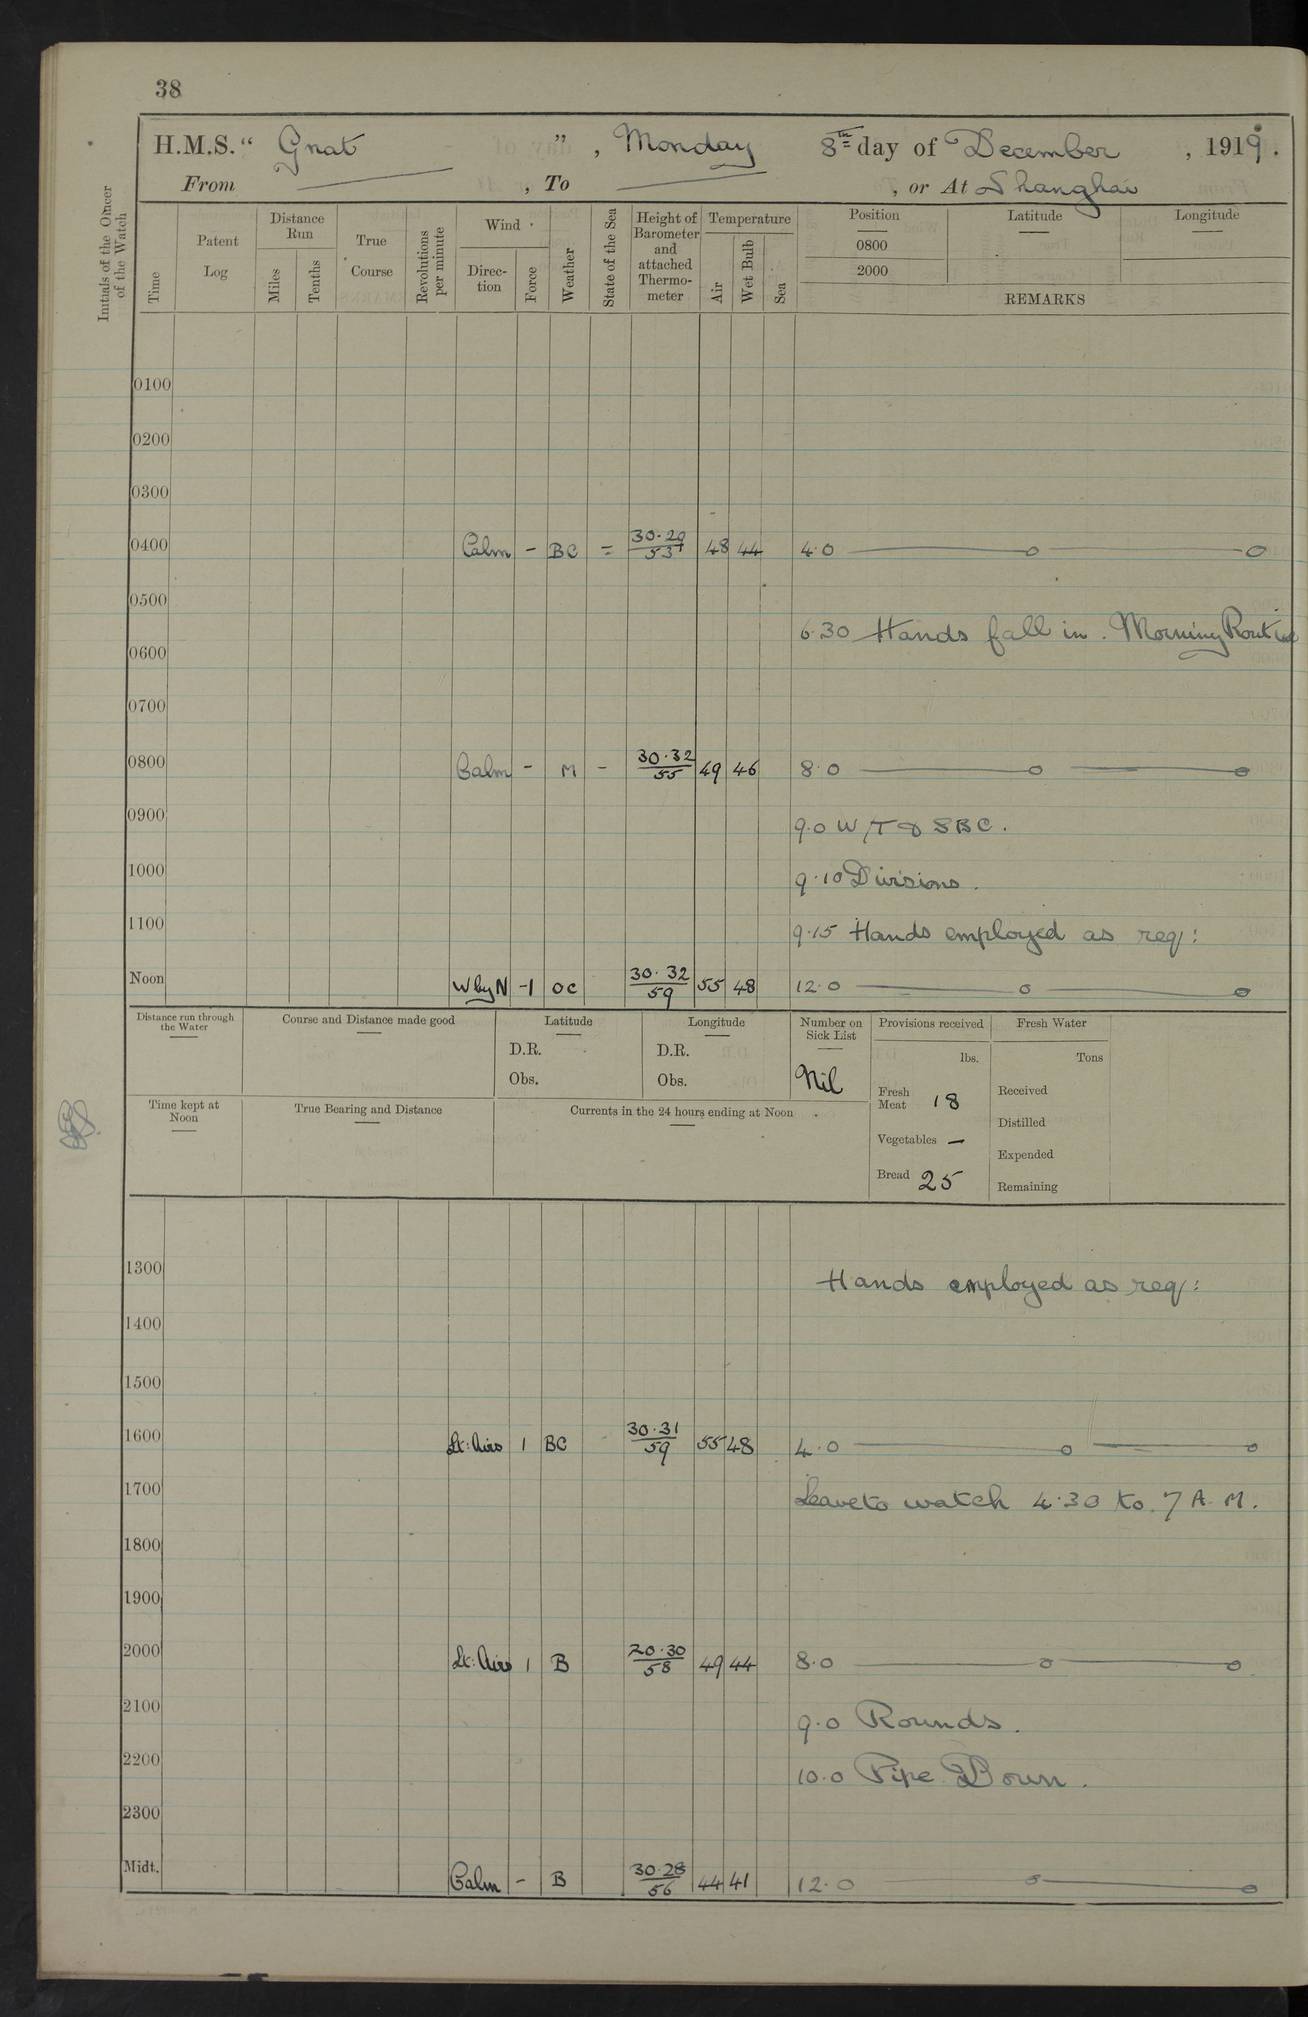 38
H.M.S. “ Gnat ” , Monday 8th day of December , 1919 .
From , To , or At Shanghai
Initials of the Officer of the Watch
Time
Patent Log
Distance Run
Miles
Tenths
True Course
Revolutions per minute
Wind
Direc-tion
Force
Weather
State of the Sea
Height of Barometer and attached Thermo-meter
Temperature
Air
Wet Bulb
Sea
Position
0800
2000
Latitude
Longitude
REMARKS
0100
0200
0300
0400 Calm - BC = 30.29/53 48 44 4.0 ——o——o
0500
6.30 Hands fall in . Morning Routine
0600
0700
0800 Calm - M - 30.32/55 49 46 8.0 ——o——o
0900
9.0 W/T & SBC .
1000
9.10 Divisions .
1100
9.15 Hands employed as req:
Noon W by N -1 oc 30.32/59 55 48 12.0 ——o——o
Distance run through the Water
Course and Distance made good
Latitude
D.R.
Obs.
Longitude
D.R.
Obs.
Number on Sick List
Nil
Provisions received
lbs.
Fresh Meat 18
Vegetables —
Bread 25
Fresh Water
Tons
Received
Distilled
Expended
Remaining
Time kept at Noon
True Bearing and Distance
Currents in the 24 hours ending at Noon
1300
Hands employed as req:
1400
1500
1600 Lt: Airs 1 BC 30.31/59 55 48 4.0 ——o——o
1700
Leave to watch 4.30 to 7 A.M.
1800
1900
2000 Lt: Airs 1 B 20.30/58 49 44 8.0 ——o——o
2100
9.0 Rounds .
2200
10.0 Pipe Down .
2300
Midt. Calm - B 30.28/56 44 41 12.0 ——o——o